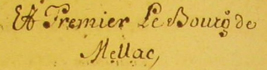 Et Premier Le Bourg de
Mellac,